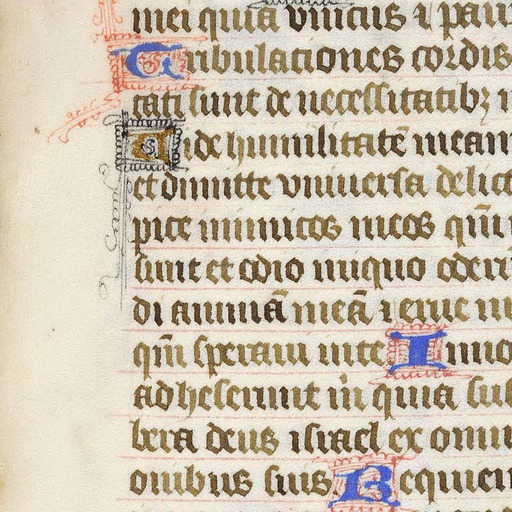 mei quia vnicus ⁊ pau
Tribulationes cordis
cati sunt de necessitatibꝫ
Vide humilitatē meam
et dimitte vniuersa delict
pice inimicos meos qm̄
sunt et odio iniquo oder
di animā meā ⁊ erue m
qm̄ speraui in te Inno
adheserunt m̄ quia sus
bera deus israel ex omni
onibus suis Requiem